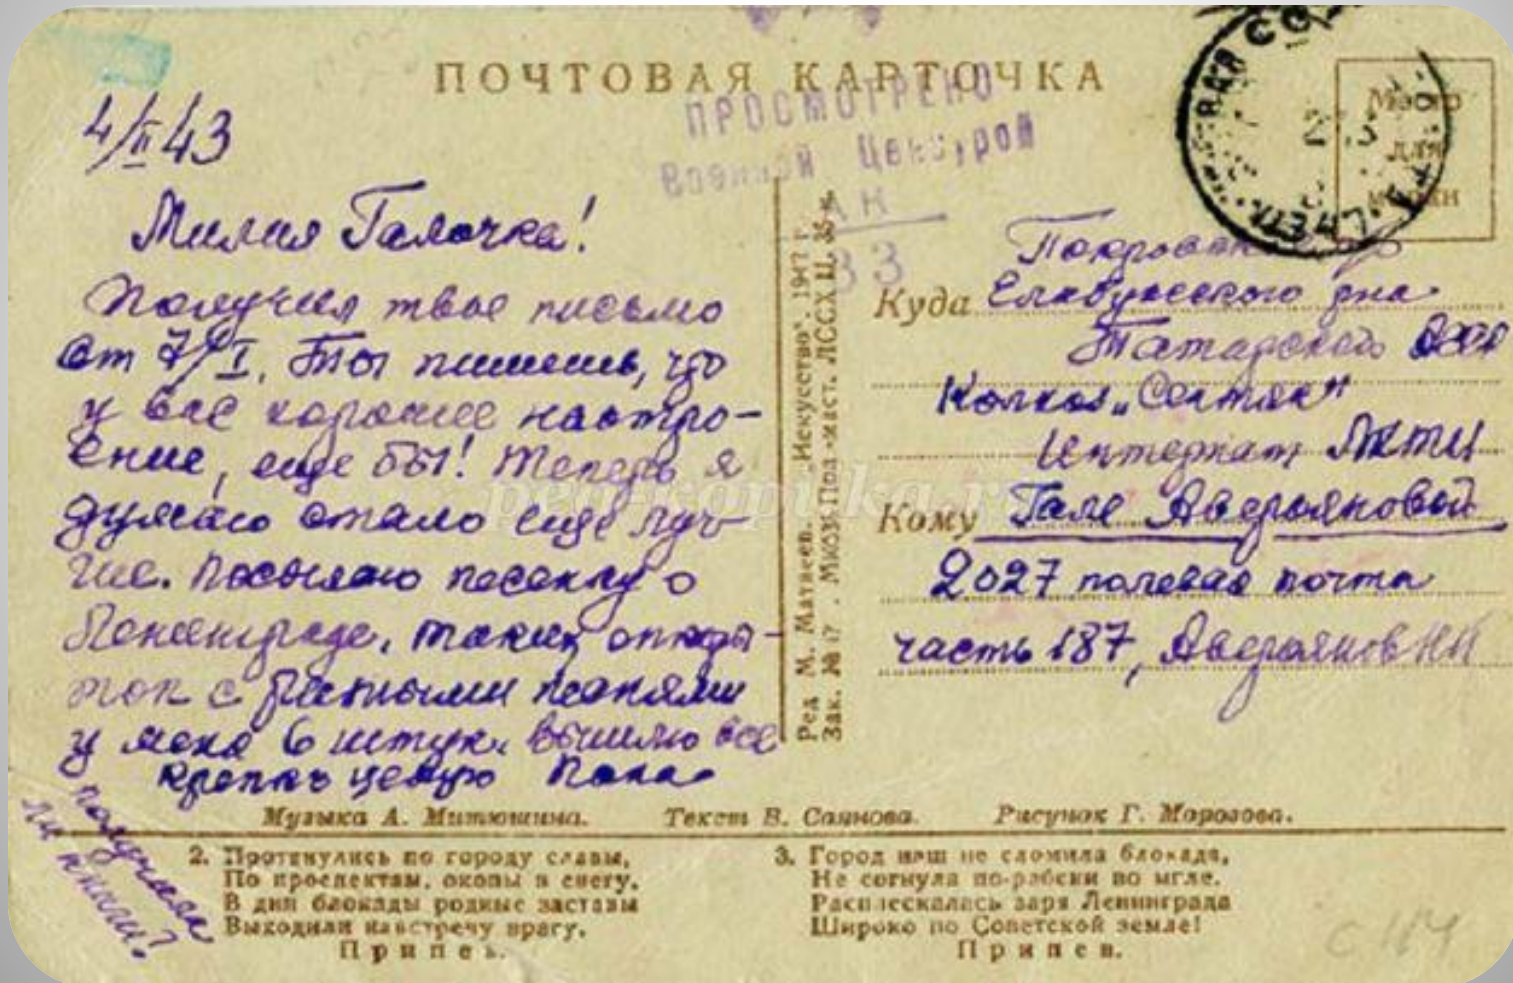 ПОЧТОВАЯ КАРТОЧКА
ПРОСМОТРЕНО
Военной Цензурой
33
Место
для
марки
4/II 43
Милая Галочка!
Получил твое письмо
от 7/I. Ты пишешь, что
у вас хорошее настро-
ение, еще бы! Теперь я
думаю стало еще луч-
ше. Посылаю песенку о
Ленинграде, таких откры-
ток с разными песнями
у меня 6 штук. Вышлю все
крепко целую Папа
получили
ли книги?
Ред М. Матвеев. „Искусство". 1942 г.
Куда
Елабужского р-на
Татарской АССР
Колхоз „Сентяк"
Интернат
Кому Гале Аверьяновой
2027 полевая почта
часть 187, Аверьянов НИ
Музыка А. Митюшина. Текст В. Саянова. Рисунок Г. Морозова.
2. Протянулись по городу славы,
По проспектам, окопы в снегу.
В дни блокады родные заставы
Выходили навстречу врагу.
Припев.
3. Город наш не сломила блокада,
Не согнула по-рабски во мгле.
Расплескалась заря Ленинграда
Широко по Советской земле!
Припев.
ped-kopilka.ru